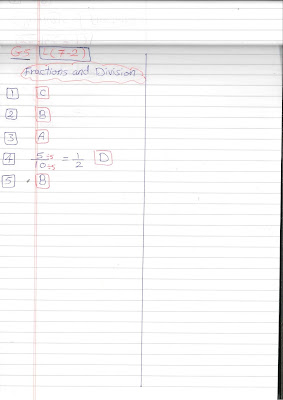 G5 L(7-2)
Fractions and Division
1 C
2 B
3 A
4 5÷5/10÷5 = 1/2 D
5 B